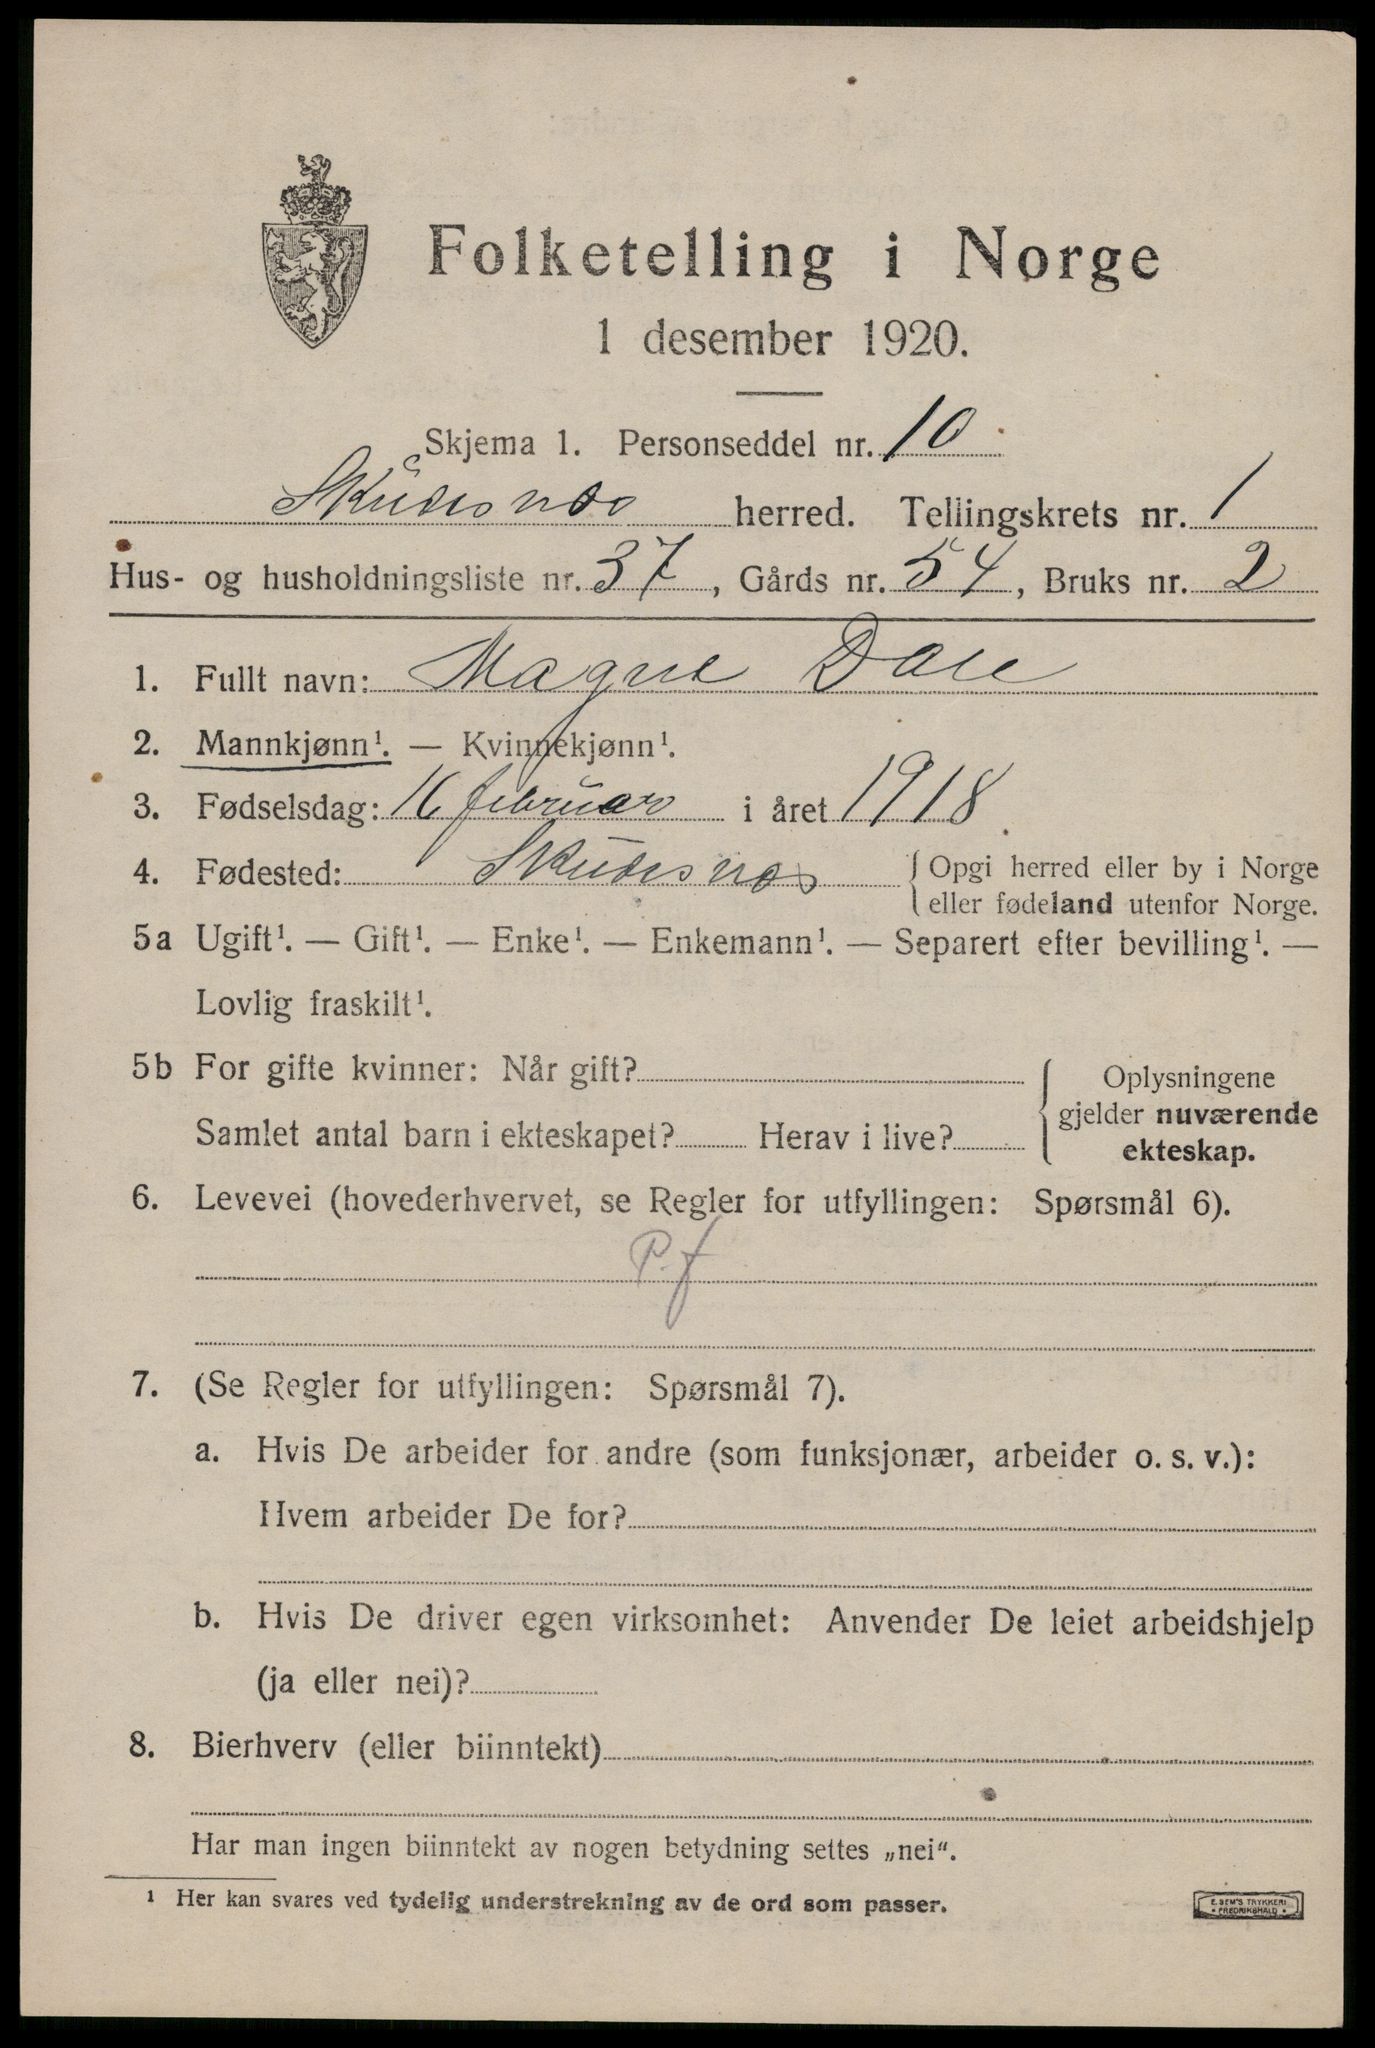 Folketelling i Norge
1 desember 1920.
Skjema 1. Personseddel nr. 10
Skudesnes herred. Tellingskrets nr. 1
Hus- og husholdningsliste nr. 37, Gårds nr. 54, Bruks nr. 2
1. Fullt navn: Magne Dale
2. Mannkjønn¹. — Kvinnekjønn¹.
3. Fødselsdag: 16 februar i året 1918
4. Fødested: Skudesnes { Opgi herred eller by i Norge
eller fødeland utenfor Norge.
5a Ugift¹. — Gift¹. — Enke¹. — Enkemann¹. — Separert efter bevilling¹. —
Lovlig fraskilt¹.
5b For gifte kvinner: Når gift?
Samlet antal barn i ekteskapet? Herav i live?
Oplysningene
gjelder nuværende
ekteskap.
6. Levevei (hovederhvervet, se Regler for utfyllingen: Spørsmål 6).
P.f
7. (Se Regler for utfyllingen: Spørsmål 7).
a. Hvis De arbeider for andre (som funksjonær, arbeider o. s. v.):
Hvem arbeider De for?
b. Hvis De driver egen virksomhet: Anvender De leiet arbeidshjelp
(ja eller nei)?
8. Bierhverv (eller biinntekt)
Har man ingen biinntekt av nogen betydning settes „nei“.
¹ Her kan svares ved tydelig understrekning av de ord som passer.
E. SEM'S TRYKKERI
• FREDRIKSHALD •